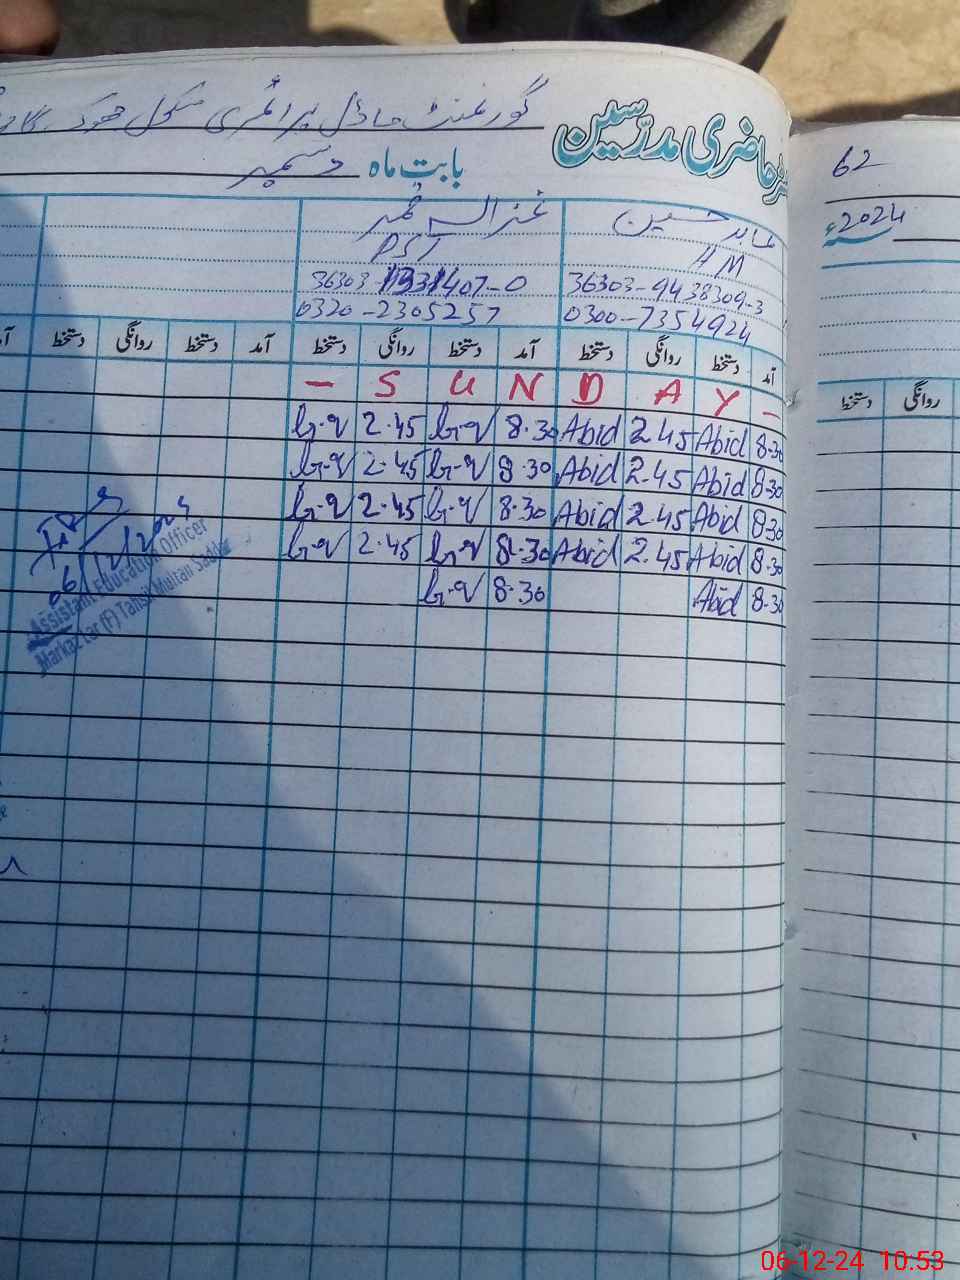 گورنمنٹ ماڈل پرائمری سکول
حاضری مدرسین
62
بابت ماہ دسمبر
2024ء
عابد حسین
HM
36303-9438309-3
0300-7354924
غزالہ
PST
36303-1331407-0
0320-2305257
آمد دستخط روانگی دستخط آمد دستخط روانگی دستخط آمد دستخط روانگی دستخط
دستخط روانگی
- S U N D A Y -
8.30 Abid 2.45 Abid 8.30 G.q 2.45 G.q
8.30 Abid 2.45 Abid 8.30 G.q 2.45 G.q
8.30 Abid 2.45 Abid 8.30 G.q 2.45 G.q
8.30 Abid 2.45 Abid 8.30 G.q 2.45 G.q
8.30 Abid 8.30 G.q
06/12/2024
Assistant Education Officer
Markaz Lar (F) Tahsil Multan Saddar
06-12-24 10.53